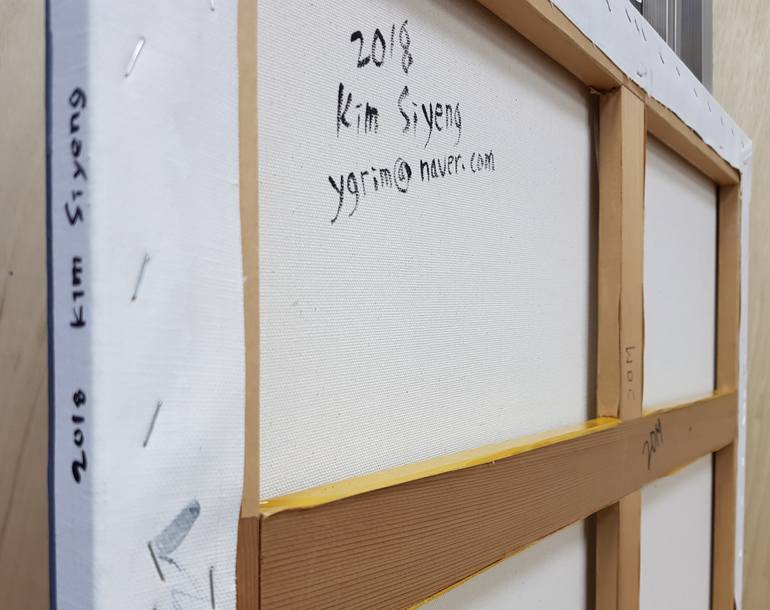 2018
Kim Siyeng
ygrim@naver.com
2018 Kim Siyeng
20M
20M